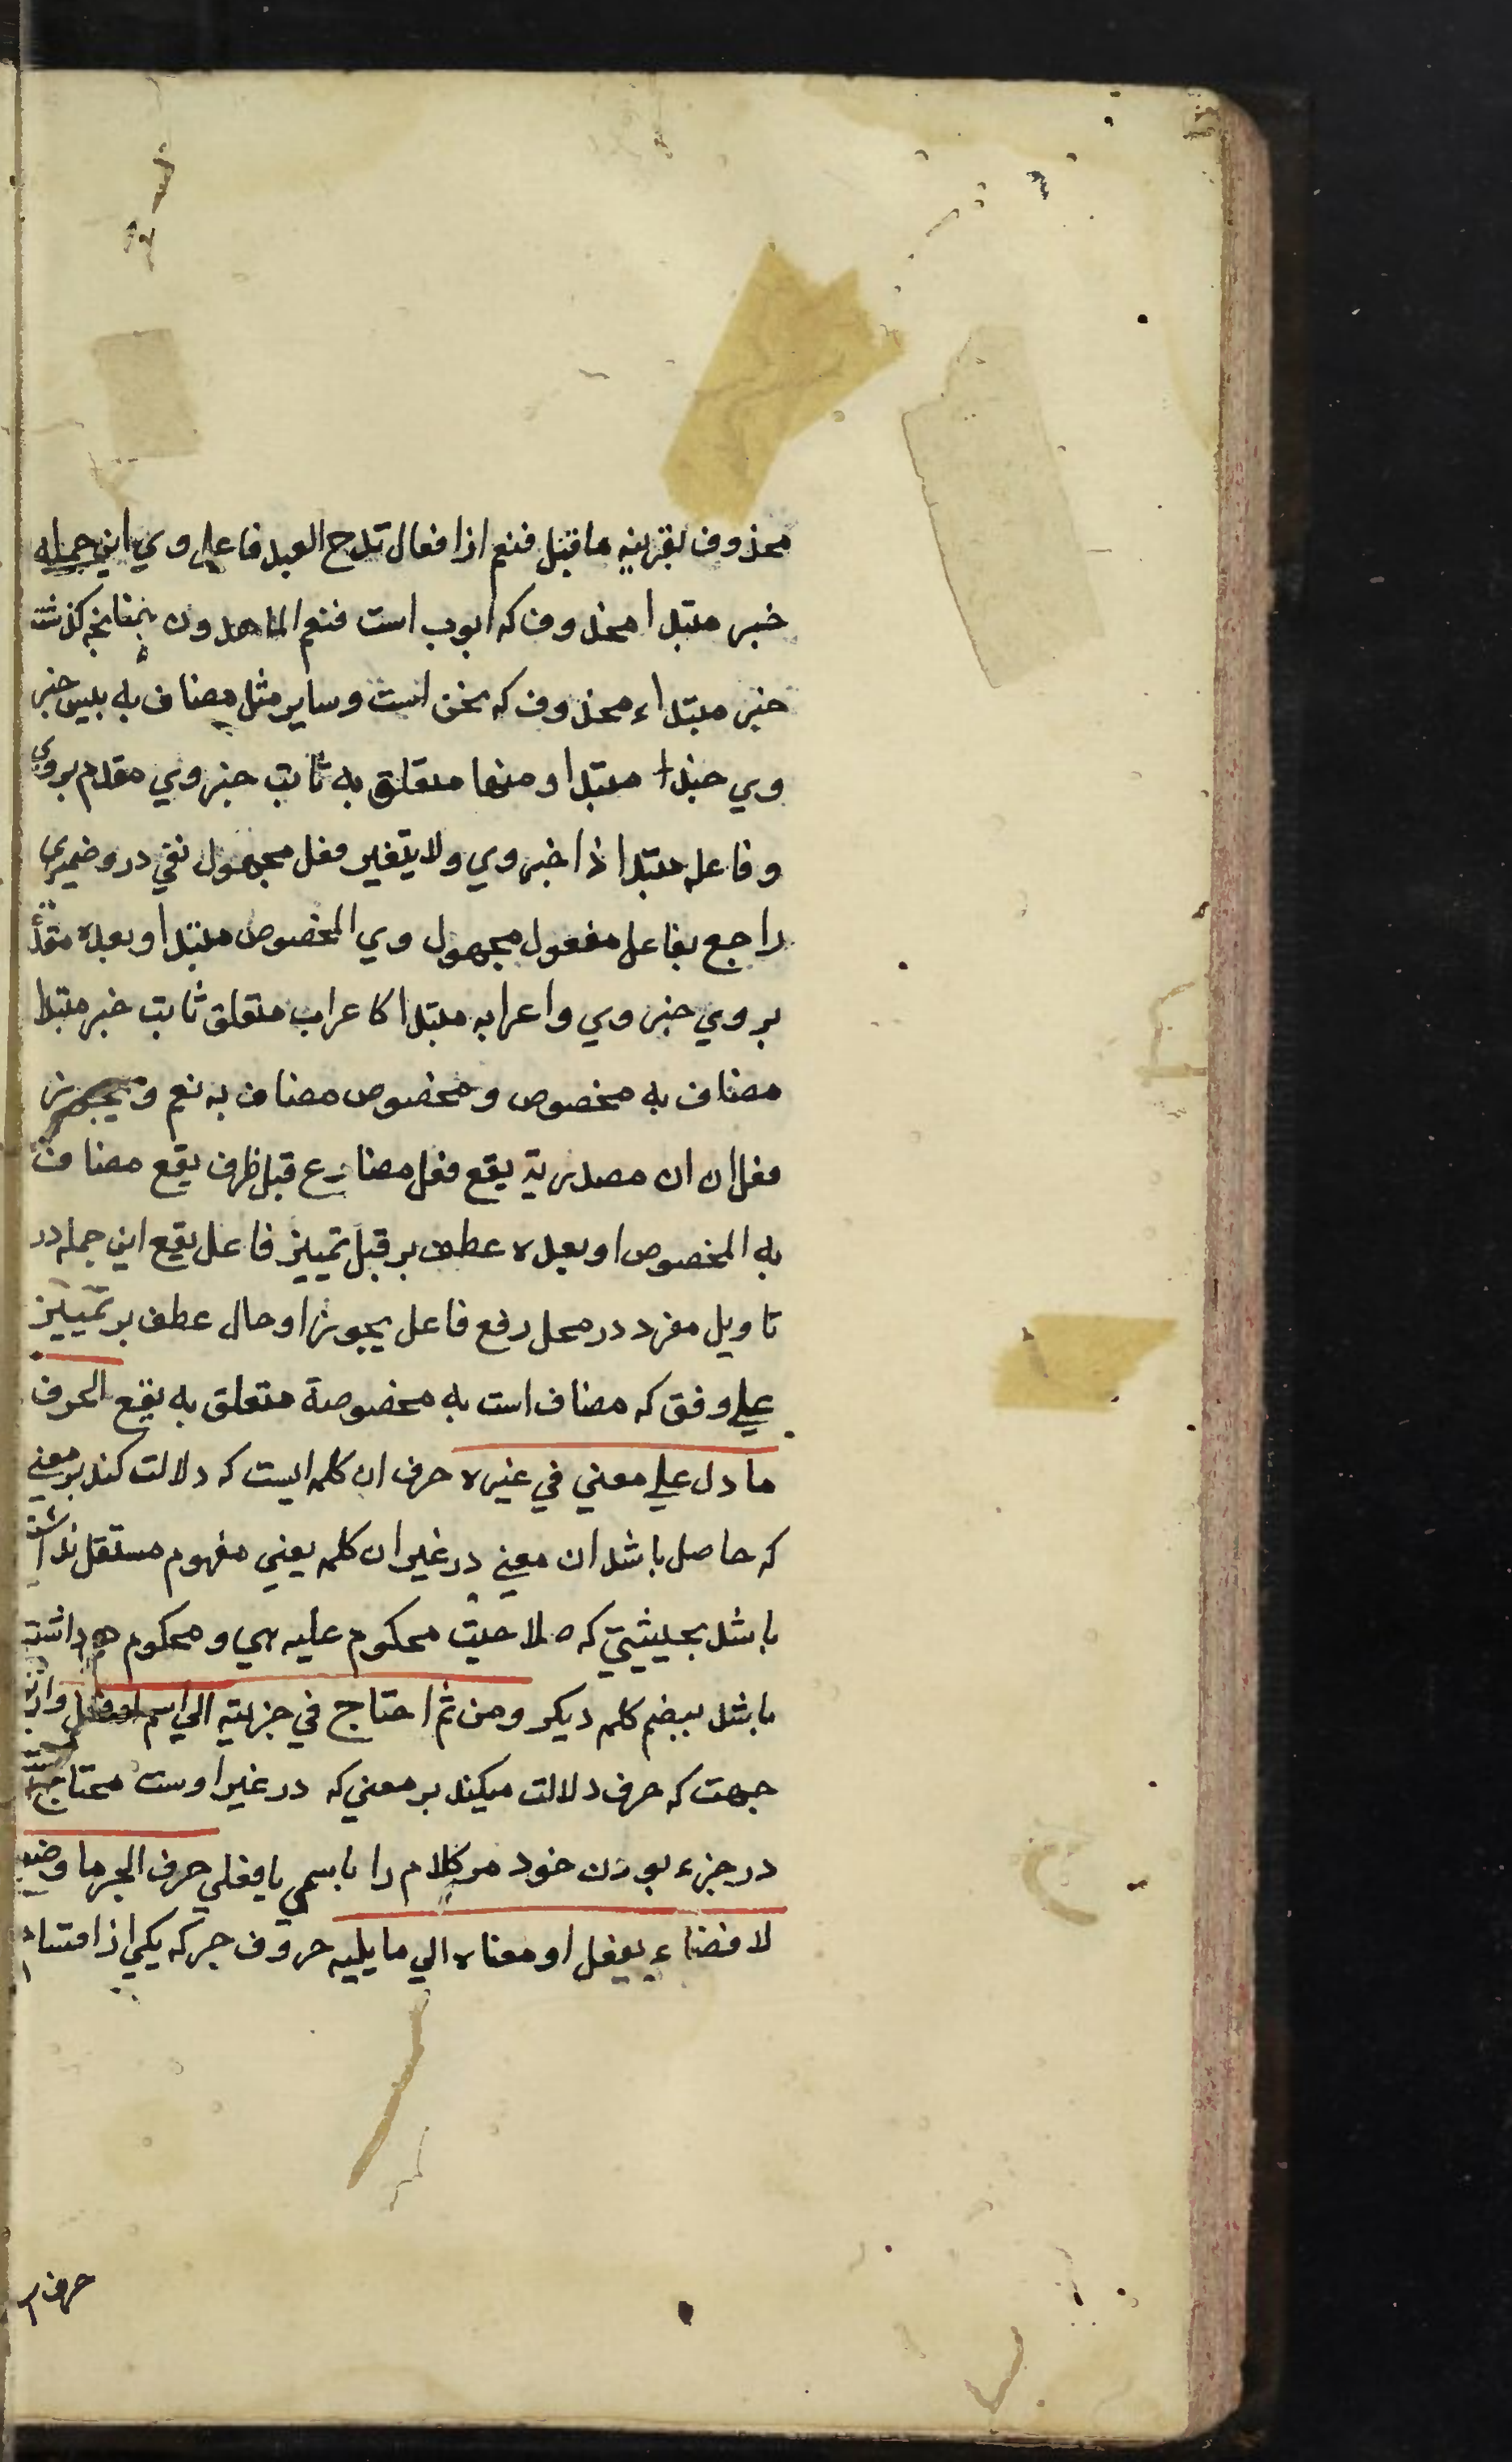 محذوف بقرینه ماقبل فنعم از افعال تدح العبد فاعل وی این جمله
خبر مبتدا محذوف که ایوب است فنعم الماهدون بمقایخه کذشت
خبر مبتداء محذوف که نحن است وسایر مثل مضاف به بلیس خبر
وی حبذا مبتدا ومنها متعلق به ثابت خبر وی مقدم بروی
وفاعله مبتدا ذا خبر وی ولا یتغیر فعل مجهول نفی درو ضمیری
راجع بفاعل مفعول مجهول وی المخصوص مبتدا وبعده
بروی خبر وی واعرابه مبتدا کاعراب متعلق ثابت خبر مبتدا
مضاف به مخصوص ومخصوص مضاف به نعم ویجوز
فعل ان ان مصدریة یقع فعل مضارع قبل ظرف یقع مضافت
به المخصوص او بعده عطف بر قبل تمییز فاعل یقع این جمله در
تاویل مفرد در محل رفع فاعل یجوز او حال عطف بر تمییز
علی وفق که مضاف است به مخصوصة متعلق به یقع الحرف
ما دل علی معنی فی غیره حرف ان کلمه ایست که دلالت کند بر معنی
که حاصل باشد ان معنی در غیر ان کلمه یعنی مفهوم مستقل نداشته
باشد بحیثیتی که صلاحیت محکوم علیه بهی ومحکوم هم داشته
باشد ببضم کلمه دیکر ومن ثم احتاج فی جزئیته الی اسم او فعل واز
جهت که حرف دلالت میکند بر معنی که در غیر اوست محتاج
در جزء بودن خود مر کلام را باسمی یا فعلی حرف الجر ما وضع
لافضاء بفعل او معناه الی ما یلیه حروف جر که یکی از اقسام
حرف